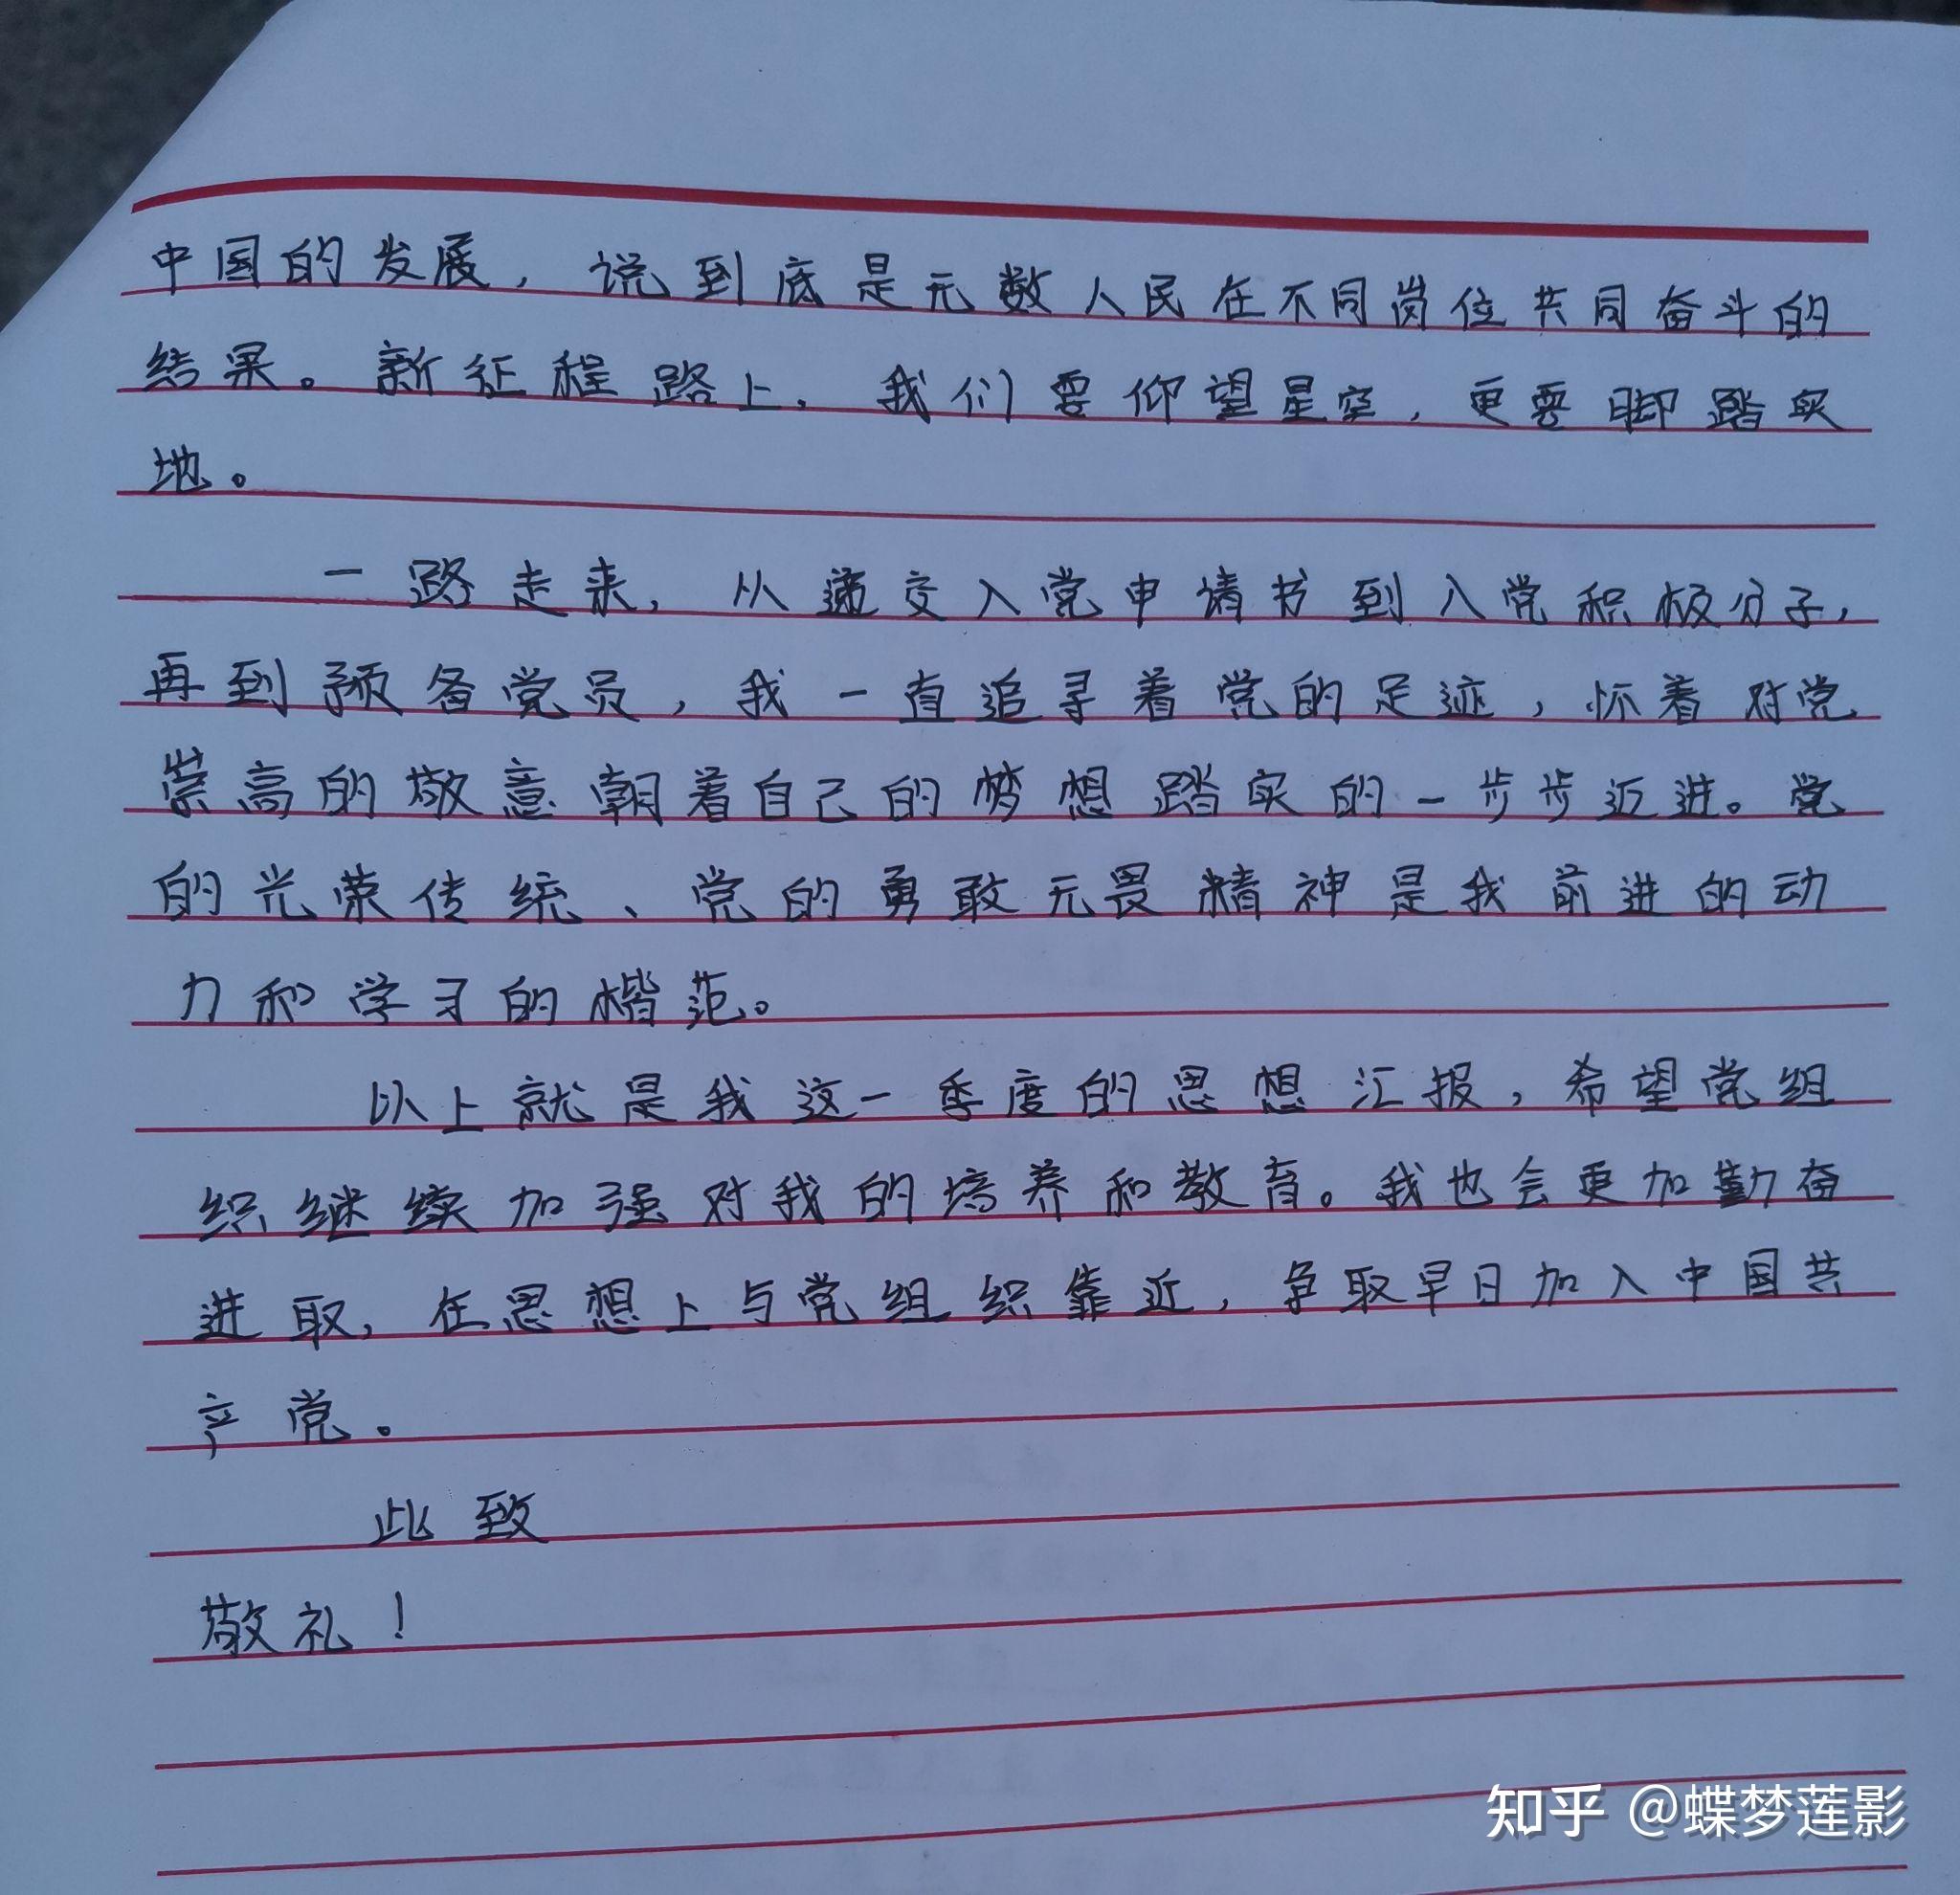 中国的发展，说到底是无数人民在不同岗位共同奋斗的
结果。新征程路上，我们要仰望星空，更要脚踏实
地。
一路走来，从递交入党申请书到入党积极分子，
再到预备党员，我一直追寻着党的足迹，怀着对党
崇高的敬意朝着自己的梦想踏实的一步步迈进。党
的光荣传统、党的勇敢无畏精神是我前进的动
力和学习的楷范。
以上就是我这一季度的思想汇报，希望党组
织继续加强对我的培养和教育。我也会更加勤奋
进取，在思想上与党组织靠近，争取早日加入中国共
产党。
此致
敬礼！
知乎 @蝶梦莲影